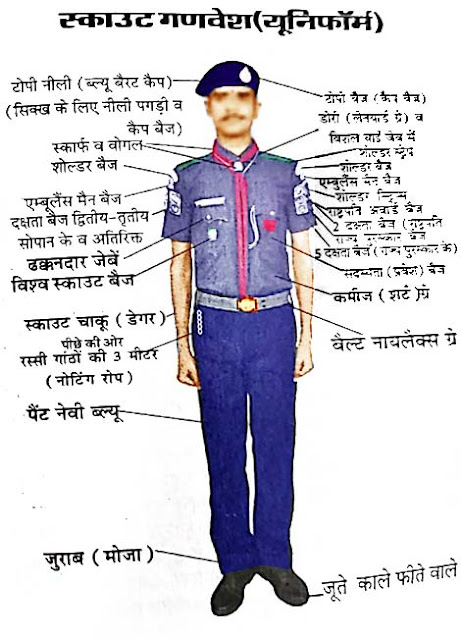 स्काउट गणवेश(यूनिफॉर्म)
टोपी नीली (ब्ल्यू बैरट कैप)
(सिक्ख के लिए नीली पगड़ी व
कैप बैज)
स्कार्फ व वोगल
शोल्डर बैज
एम्बूलैंस मैन बैज
दक्षता बैज द्वितीय-तृतीय
सोपान के व अतिरिक्त
ढक्कनदार जेबें
विश्व स्काउट बैज
स्काउट चाकू (डेगर)
पीछे की ओर
रस्सी गांठों की 3 मीटर
(नोटिंग रोप)
पैंट नेवी ब्ल्यू
जुराब (मोजा)
टोपी बैज (कैप बैज)
डोरी (लेनयार्ड ग्रे) व
विसल बाईं जेब में
शोल्डर स्ट्रैप
शोल्डर बैज
एम्बूलैंस मैन बैज
शोल्डर
राष्ट्रपति अवार्ड बैज
2 दक्षता बैज (राष्ट्रपति
राज्य पुरस्कार बैज
5 दक्षता बैज (राज्य पुरस्कार के)
सदस्यता (प्रवेश) बैज
कमीज (शर्ट) ग्रे
बैल्ट नायलैक्स ग्रे
जूते काले फीते वाले